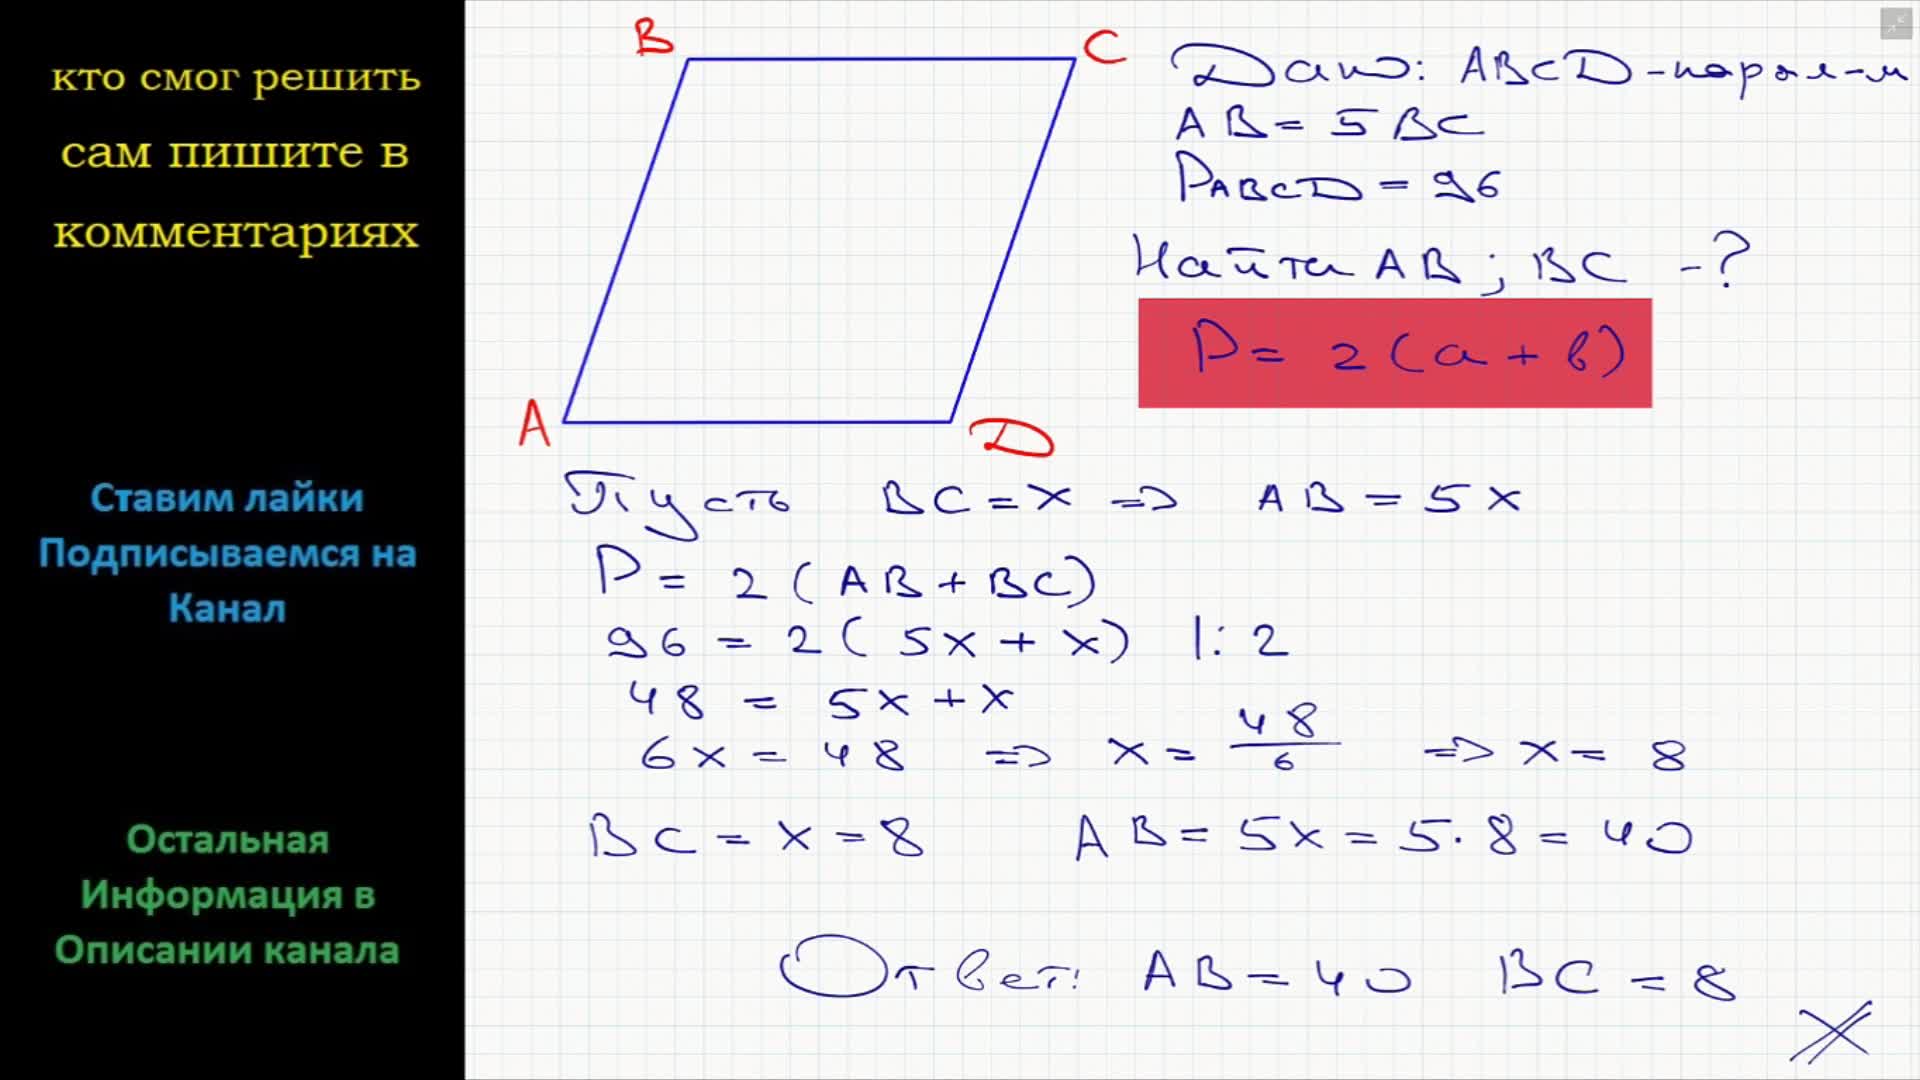 кто смог решить
сам пишите в
комментариях
Ставим лайки
Подписываемся на
Канал
Остальная
Информация в
Описании канала
B
C
A
D
Дано: ABCD - парал-м
AB = 5 BC
PABCD = 96
Найти AB ; BC - ?
P = 2 (a + b)
Пусть BC = x => AB = 5 x
P = 2 ( AB + BC )
96 = 2 ( 5x + x ) | : 2
48 = 5x + x
6x = 48 => x = 48/6 => x = 8
BC = x = 8 AB = 5x = 5 · 8 = 40
Ответ: AB = 40 BC = 8